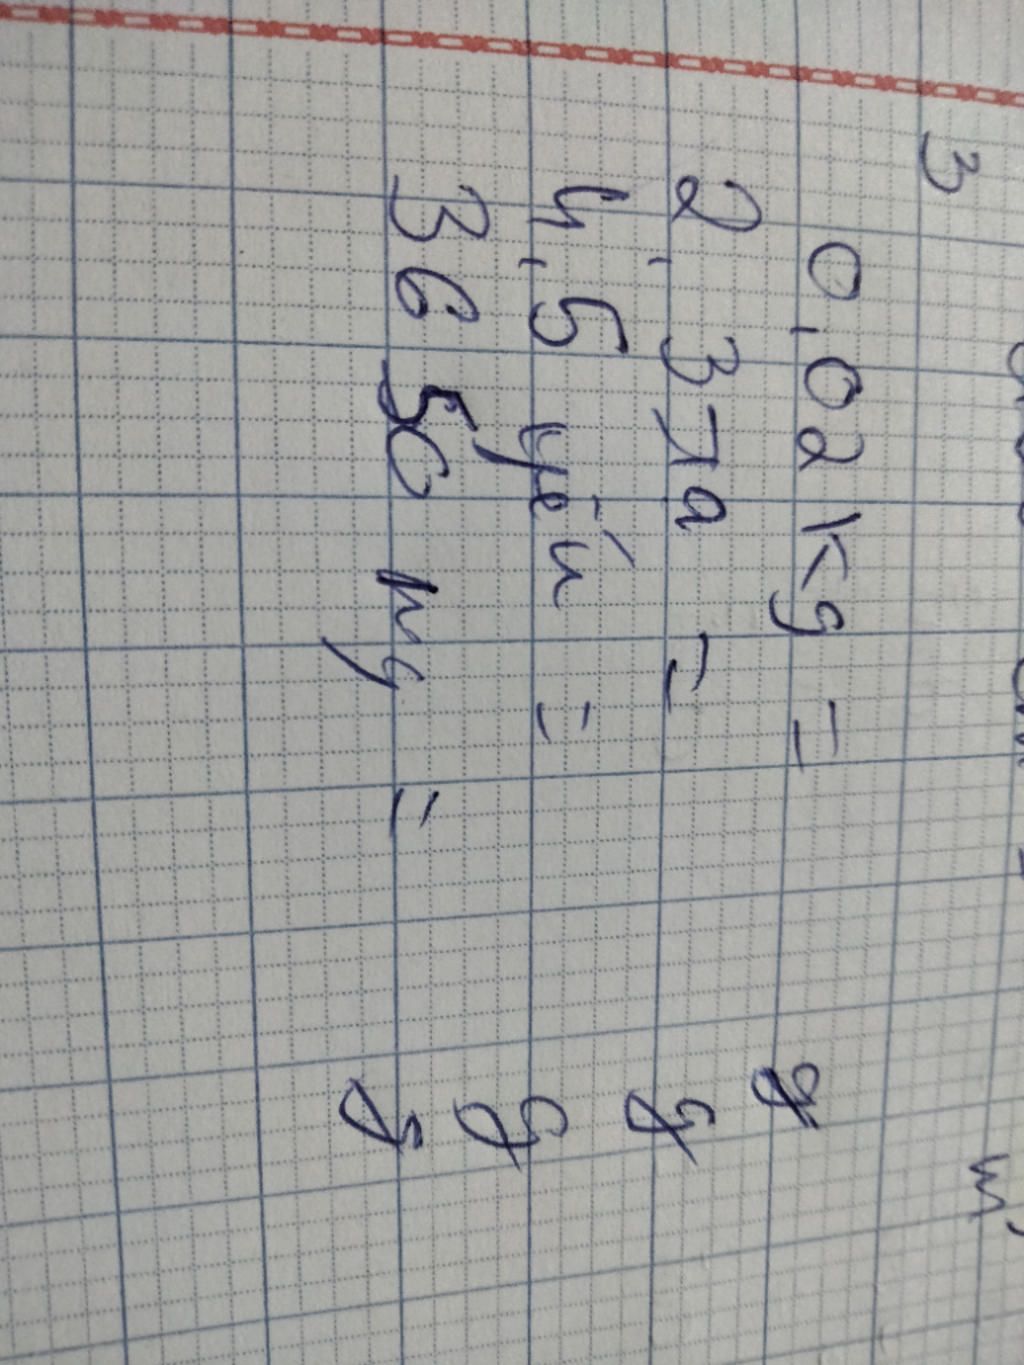 3
0,02 kg = g
2,37a = g
4,5 yến = g
3650 mg = g